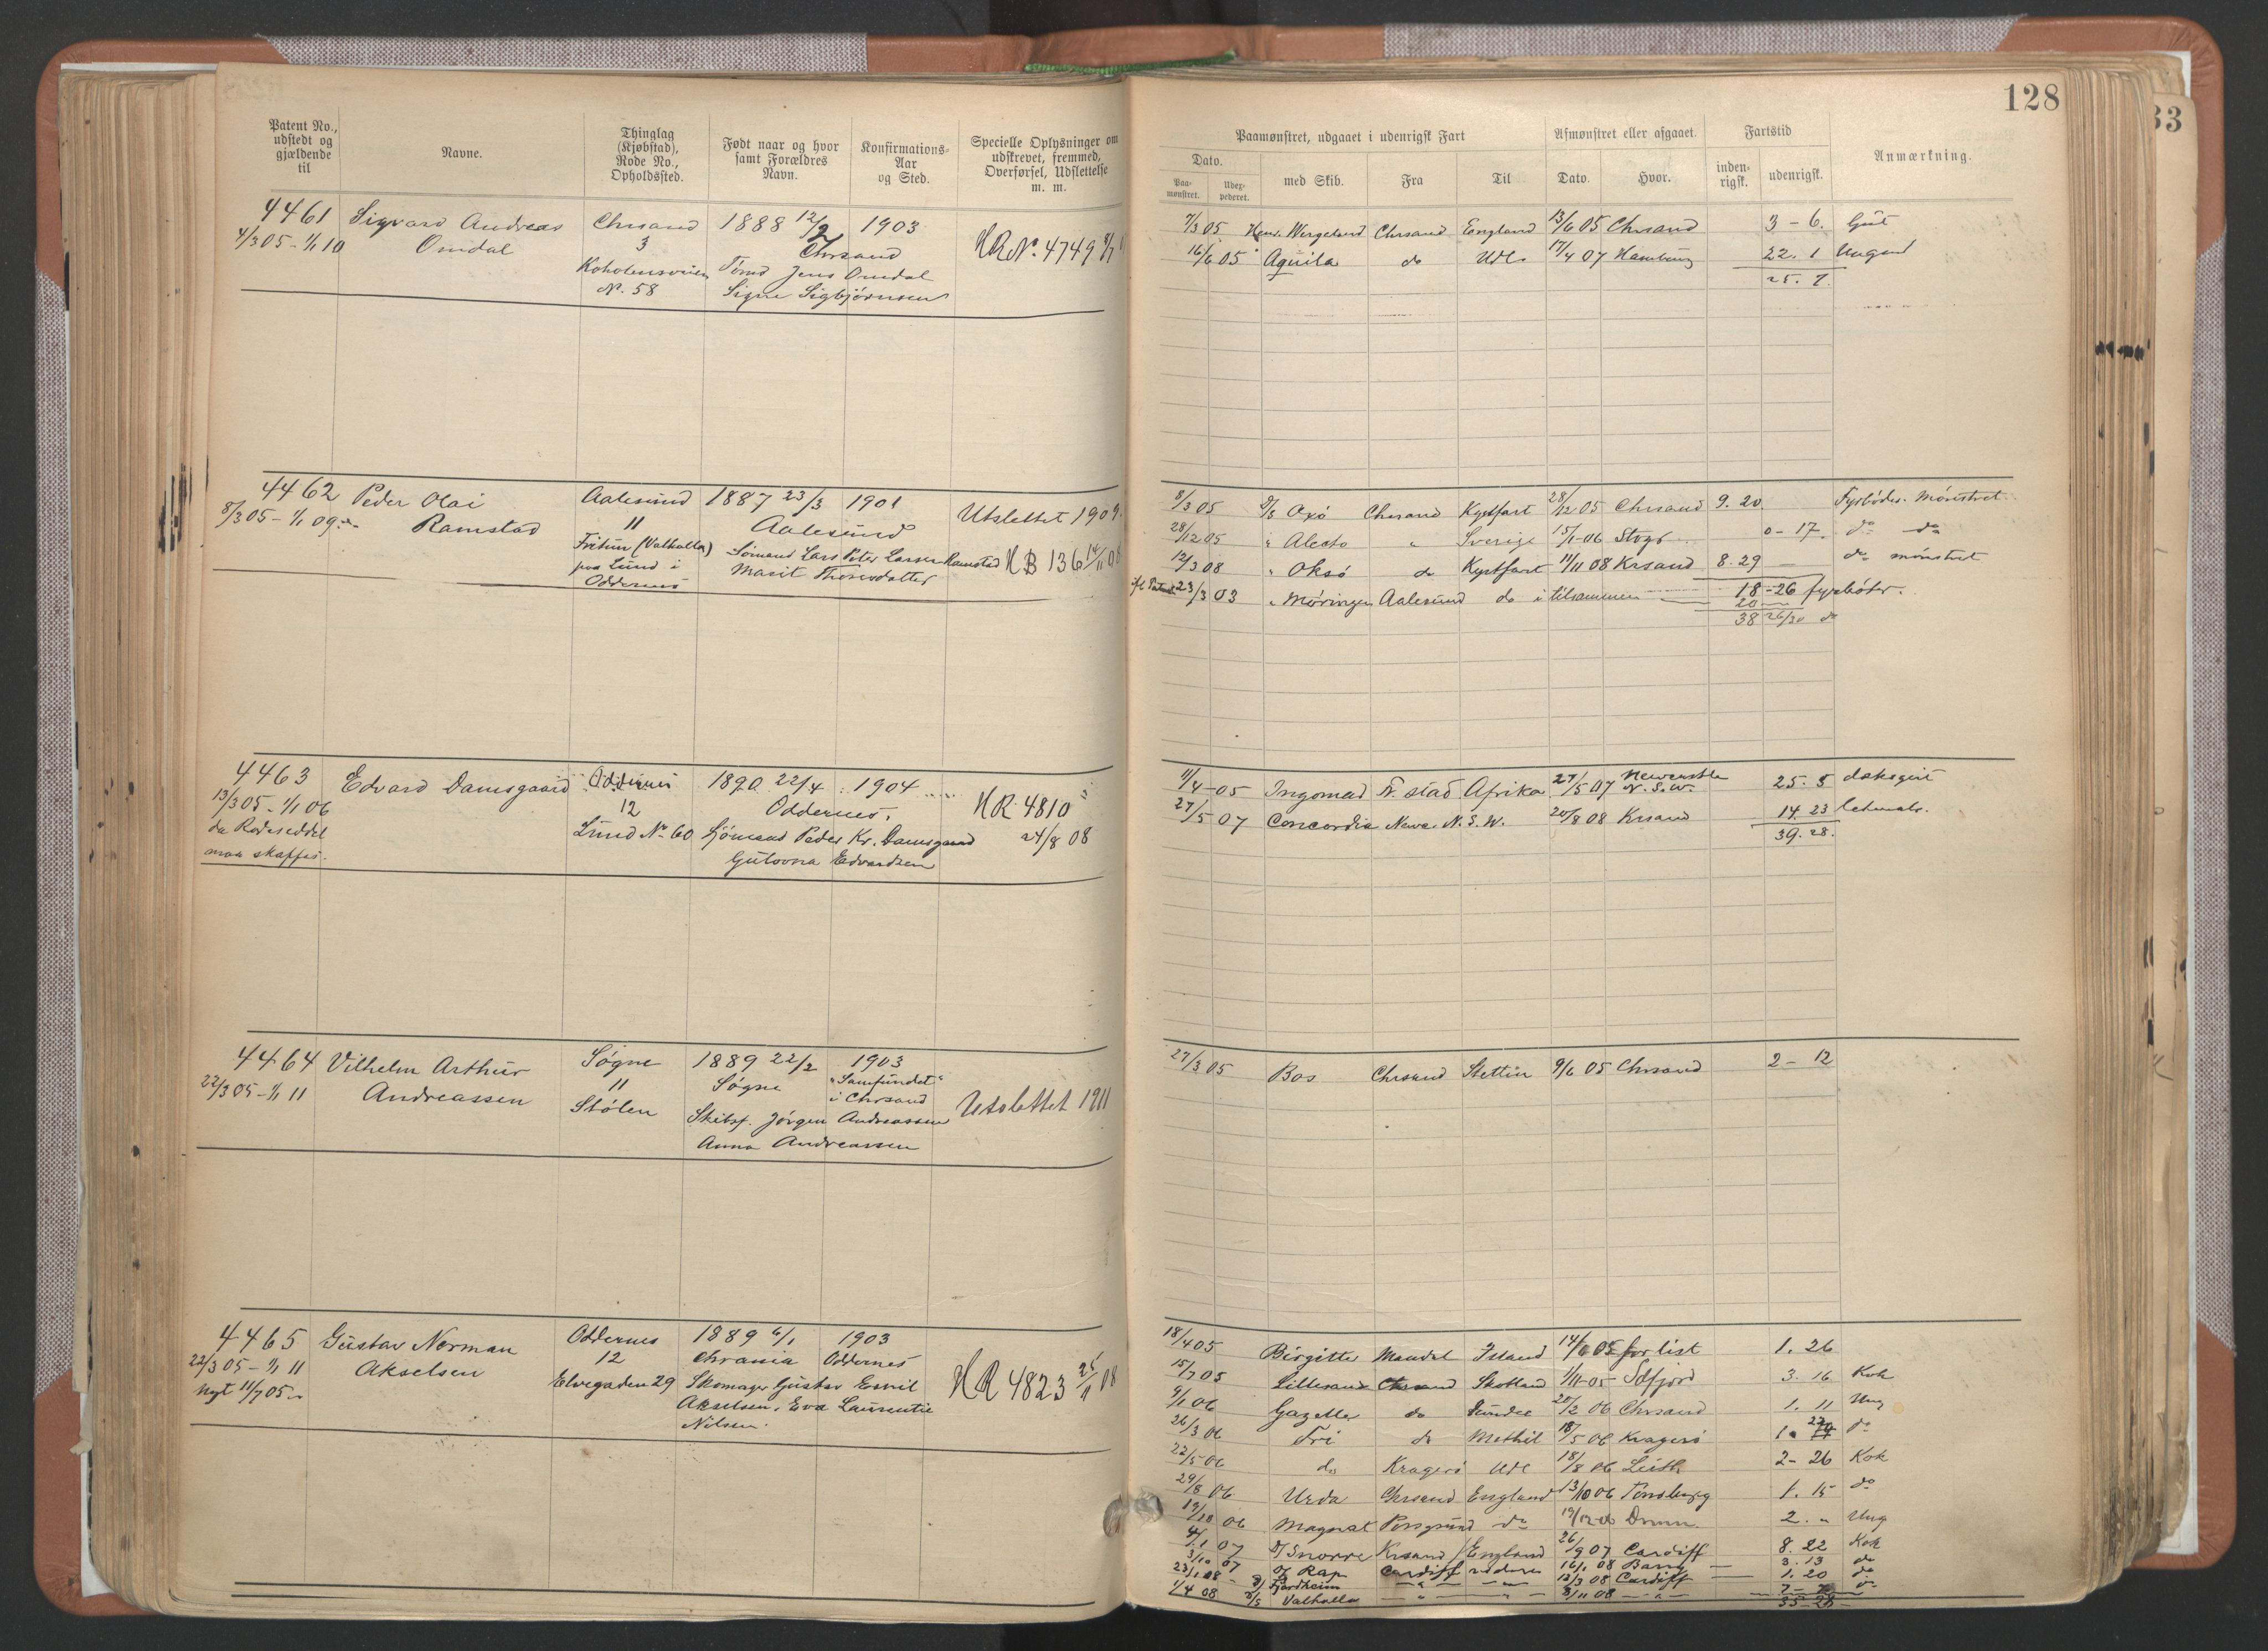 128
33
Patent No., udstedt og gjældende til
Navne.
Thinglag (Kjøbstad), Rode No., Opholdssted.
Født naar og hvor samt Forældres Navn.
Konfirmations-Aar og Sted.
Specielle Oplysninger om udskrevet, fremmed, Overførsel, Udslettelse m. m.
Paamønstret, udgaaet i udenrigsk Fart
Afmønstret eller afgaaet.
Fartstid
Anmærkning.
Dato.
Paa-mønstret.
Udex-pederet.
med Skib.
Fra
Til
Dato.
Hvor.
inden-rigsk.
udenrigsk.
4461 Sigvard Andreas Chrsand 1888 12/2 1903
4/3 05 - 1/1 10 Omdal 3 Chrsand HR No. 4749
Tømd Jens Omdal
N. 58 Signe Sigbjörnsen
7/3 05 Henr. Wergeland Chrsand England 13/6 05 Chrsand 3 - 6. Gut
16/6 05 Aquila do Udl. 17/4 07 Hamburg 22. 1 Ungmd
25. 7.
4462 Peder Olai Aalesund 1887 23/3 1901 Utslettet 1909.
8/3 05 - 1/1 09 Ramstad 11 Aalesund
Fritun (Valhalla) Sømand Lars Peter Larsen Ramstad HB 136 14/11 08
paa Lund i Marit Thoresdatter
Oddernes
8/3 05 D/S Oxö Chrsand Kystfart 28/12 05 Chrsand 9. 20. Fyrböder. Mönstret
28/12 05 " Alecto " Sverige 15/1-06 0 - 17. do do
12/3 08 " Oksö do Kystfart 11/11 08 Krsand 8. 29 do mönstret
23/3 03 " Möringen Aalesund do i tilsammen 18 - 26 fyrböter.
20
38 26/30 do
4463 Edvard Damsgaard Oddernes 1890 22/4 1904
13/3 05 - 1/1 06 12 Oddernes. HR 4810
da Rodeseddel Lund No 60 Sjömand Peder Kr. Damsgaard 24/8 08
maa skaffes. Gulovna Edvardsen
11/4-05 Ingomad Fr. stad Afrika 27/5 07 Newcastle N.S.W. 25. 5 daksgut
27/5 07 Concordia Newc. N.S.W. 20/8 08 Krsand 14. 23 letmatr.
39. 28.
4464 Vilhelm Arthur Søgne 1889 22/2 1903
22/3 05 - 1/1 11 Andreassen 11 Søgne "Samfundet" i Chrsand
Stölen Skibsf. Jörgen Andreassen Utslettet 1911
Anna Andreassen
27/3 05 Bos Chrsand Stettin 9/6 05 Chrsand 2 - 12
4465 Gustav Norman Oddernes 1889 6/1 1903
22/3 05 - 1/1 11 Akselsen 12 Chrania Oddernes
Nyt 11/7 05 Elvegaden 29 Skomager Gustav Emil HR 4823 25/11 08
Akselsen, Eva Laurentie
Nilsen.
18/4 05 Birgitte Mandal Island 14/6 05 forlist 1. 26
15/7 05 Lillesand Chrsand Skotland 1/11-05 3. 16 Kok
9/1 06 Gazelle do Dundee 20/2 06 Chrsand 1. 11 Ung
26/3 06 Fri do Methil 18/5 06 Kragerö 1. 22 do
22/5-06 do Kragerö Udl 18/8 06 Leith 2 - 26 Kok
29/8 06 Urda Chrsand England 13/10 06 Tønsberg 1. 15 do
19/10 06 Magnat Porsgrund do 19/12 06 Dram. 2. " Ung
4/1 07 D/ Snorre Krsand England 26/9 07 Cardiff 8. 22 Kok
3/10 07 D/ Rap Cardiff videre 16/1 08 Barry 3. 13 do
23/1 08 D/ Fjordheim " " 12/3 08 Cardiff 1. 20 do
1/4 08 D/S Valhalla " " 8/11 08 " 7 - 7 do
35 - 28